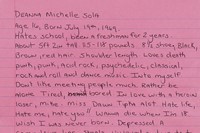 Deanna Michelle Soth
Age 16, Born July 19th, 1969.
Hates school, been a freshman for 2 years.
About 5ft 2in tall 115-118 pounds. 8½ shoe, Black,
Brown, red hair. Shoulder length. Loves death
punk, punk, acid rock, psychedelic, classical,
rock and roll and dance music. Into myself
Don't like meeting people much. Rather be
Alone. Tired, bored. In love with a heroin
loser, Mike. Miss Dawn Tipha Alot. Hate life,
Hate me, hate you!! Wanna die when I'm it
wish I was never born. Depressed. A